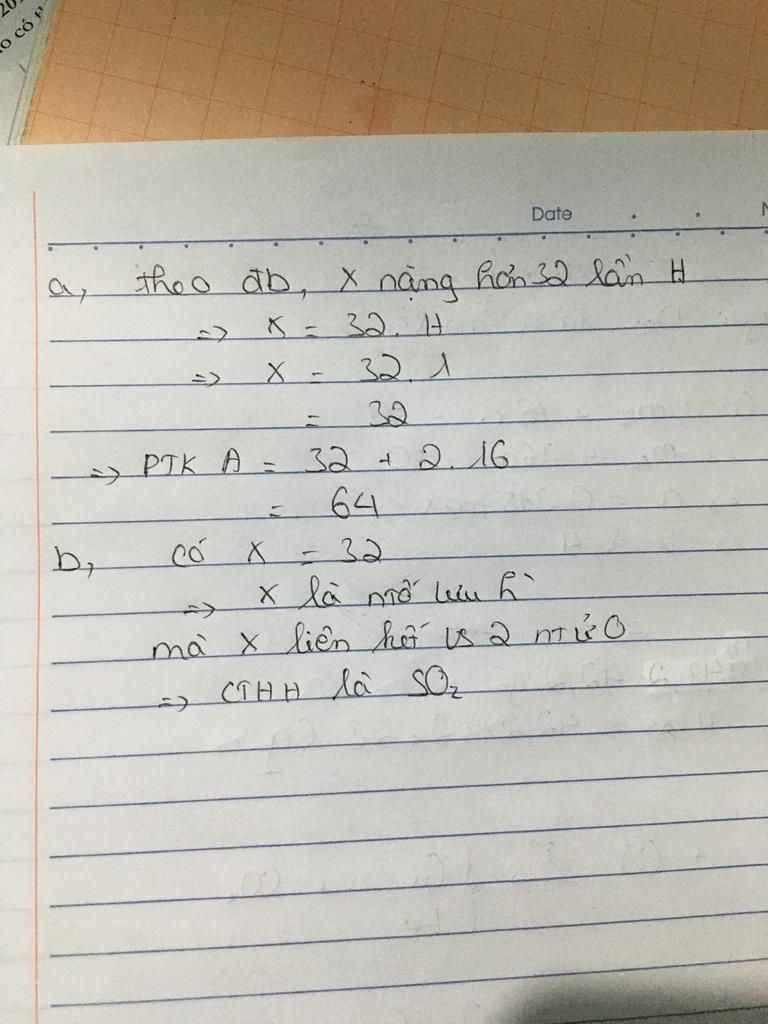 20
o có
Date
N
a, theo đb, X nặng hơn 32 lần H
=> X = 32. H
=> X = 32. 1
= 32
=> PTK A = 32 + 2. 16
= 64
b, có X = 32
=> X là ntố lưu h`
mà X liên kết vs 2 ntử O
=> CTHH là SO₂